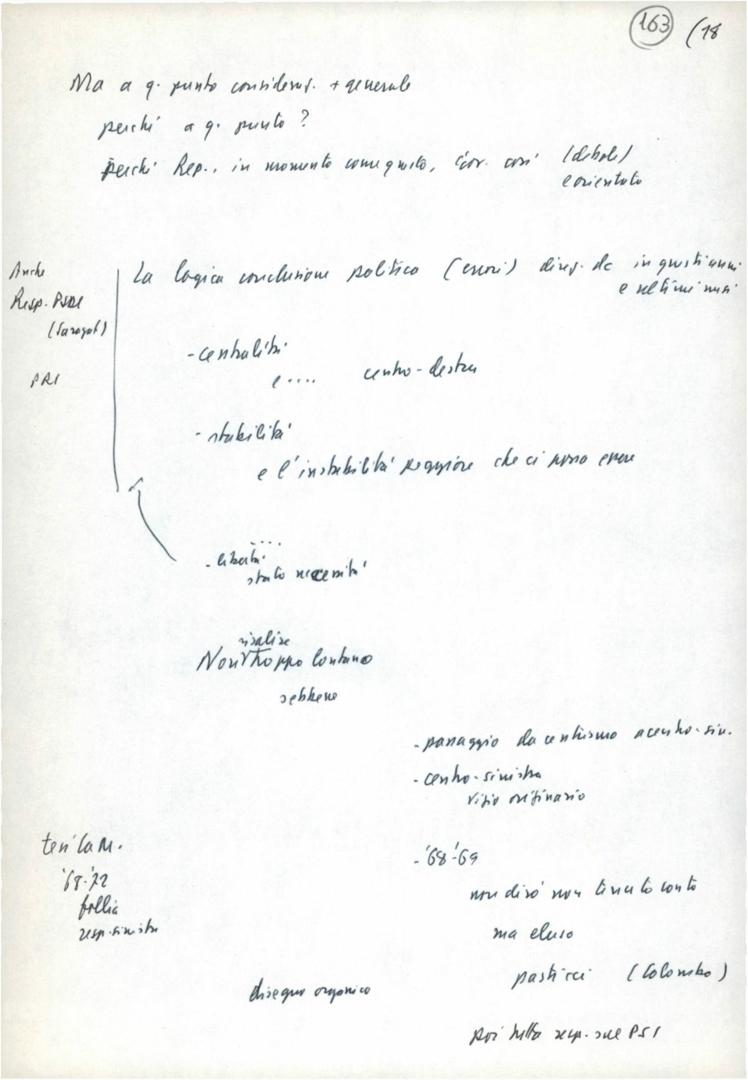 163 (18
Ma a q. punto consideraz. + generale
perché a q. punto?
perché Rep., in momento come questo, Gov. così (debole)
e orientato
Anche
Resp. PSDI
(Saragat)
PRI
La logica conclusione politica (errori) direz. dc in questi anni
e ultimi mesi
- centralità
e .... centro-destra
- stabilità
e l'instabilità peggiore che ci possa essere
....
- libertà
stato necessità
risalire
Non troppo lontano
sebbene
- passaggio da centrismo a centro-sin.
- centro-sinistra
vizio originario
tesi La M.
'68-'72
follia
resp. sinistra
- '68-'69
non dirò non tenuto conto
ma eluso
pasticci (Colombo)
disegno organico
poi tutta resp. sul PSI